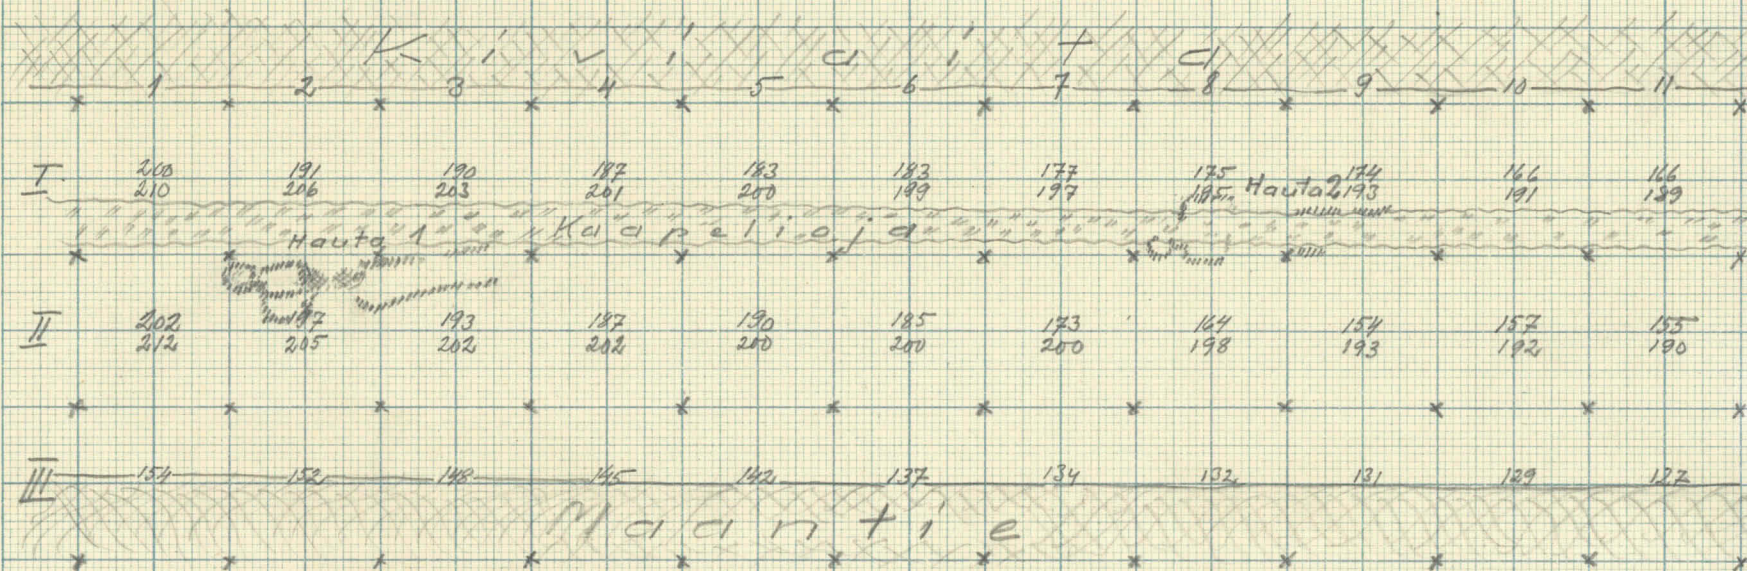 Kiviaita
1 2 3 4 5 6 7 8 9 10 11
I 200 191 190 187 183 183 177 175 174 166 166
210 206 203 201 200 199 197 195 Hauta 2 193 191 189
Hauta 1 Kaapelioja
II 202 197 193 187 190 185 173 164 154 157 155
212 205 202 202 200 200 200 198 193 192 190
III 154 152 148 145 142 137 134 132 131 129 127
Maantie